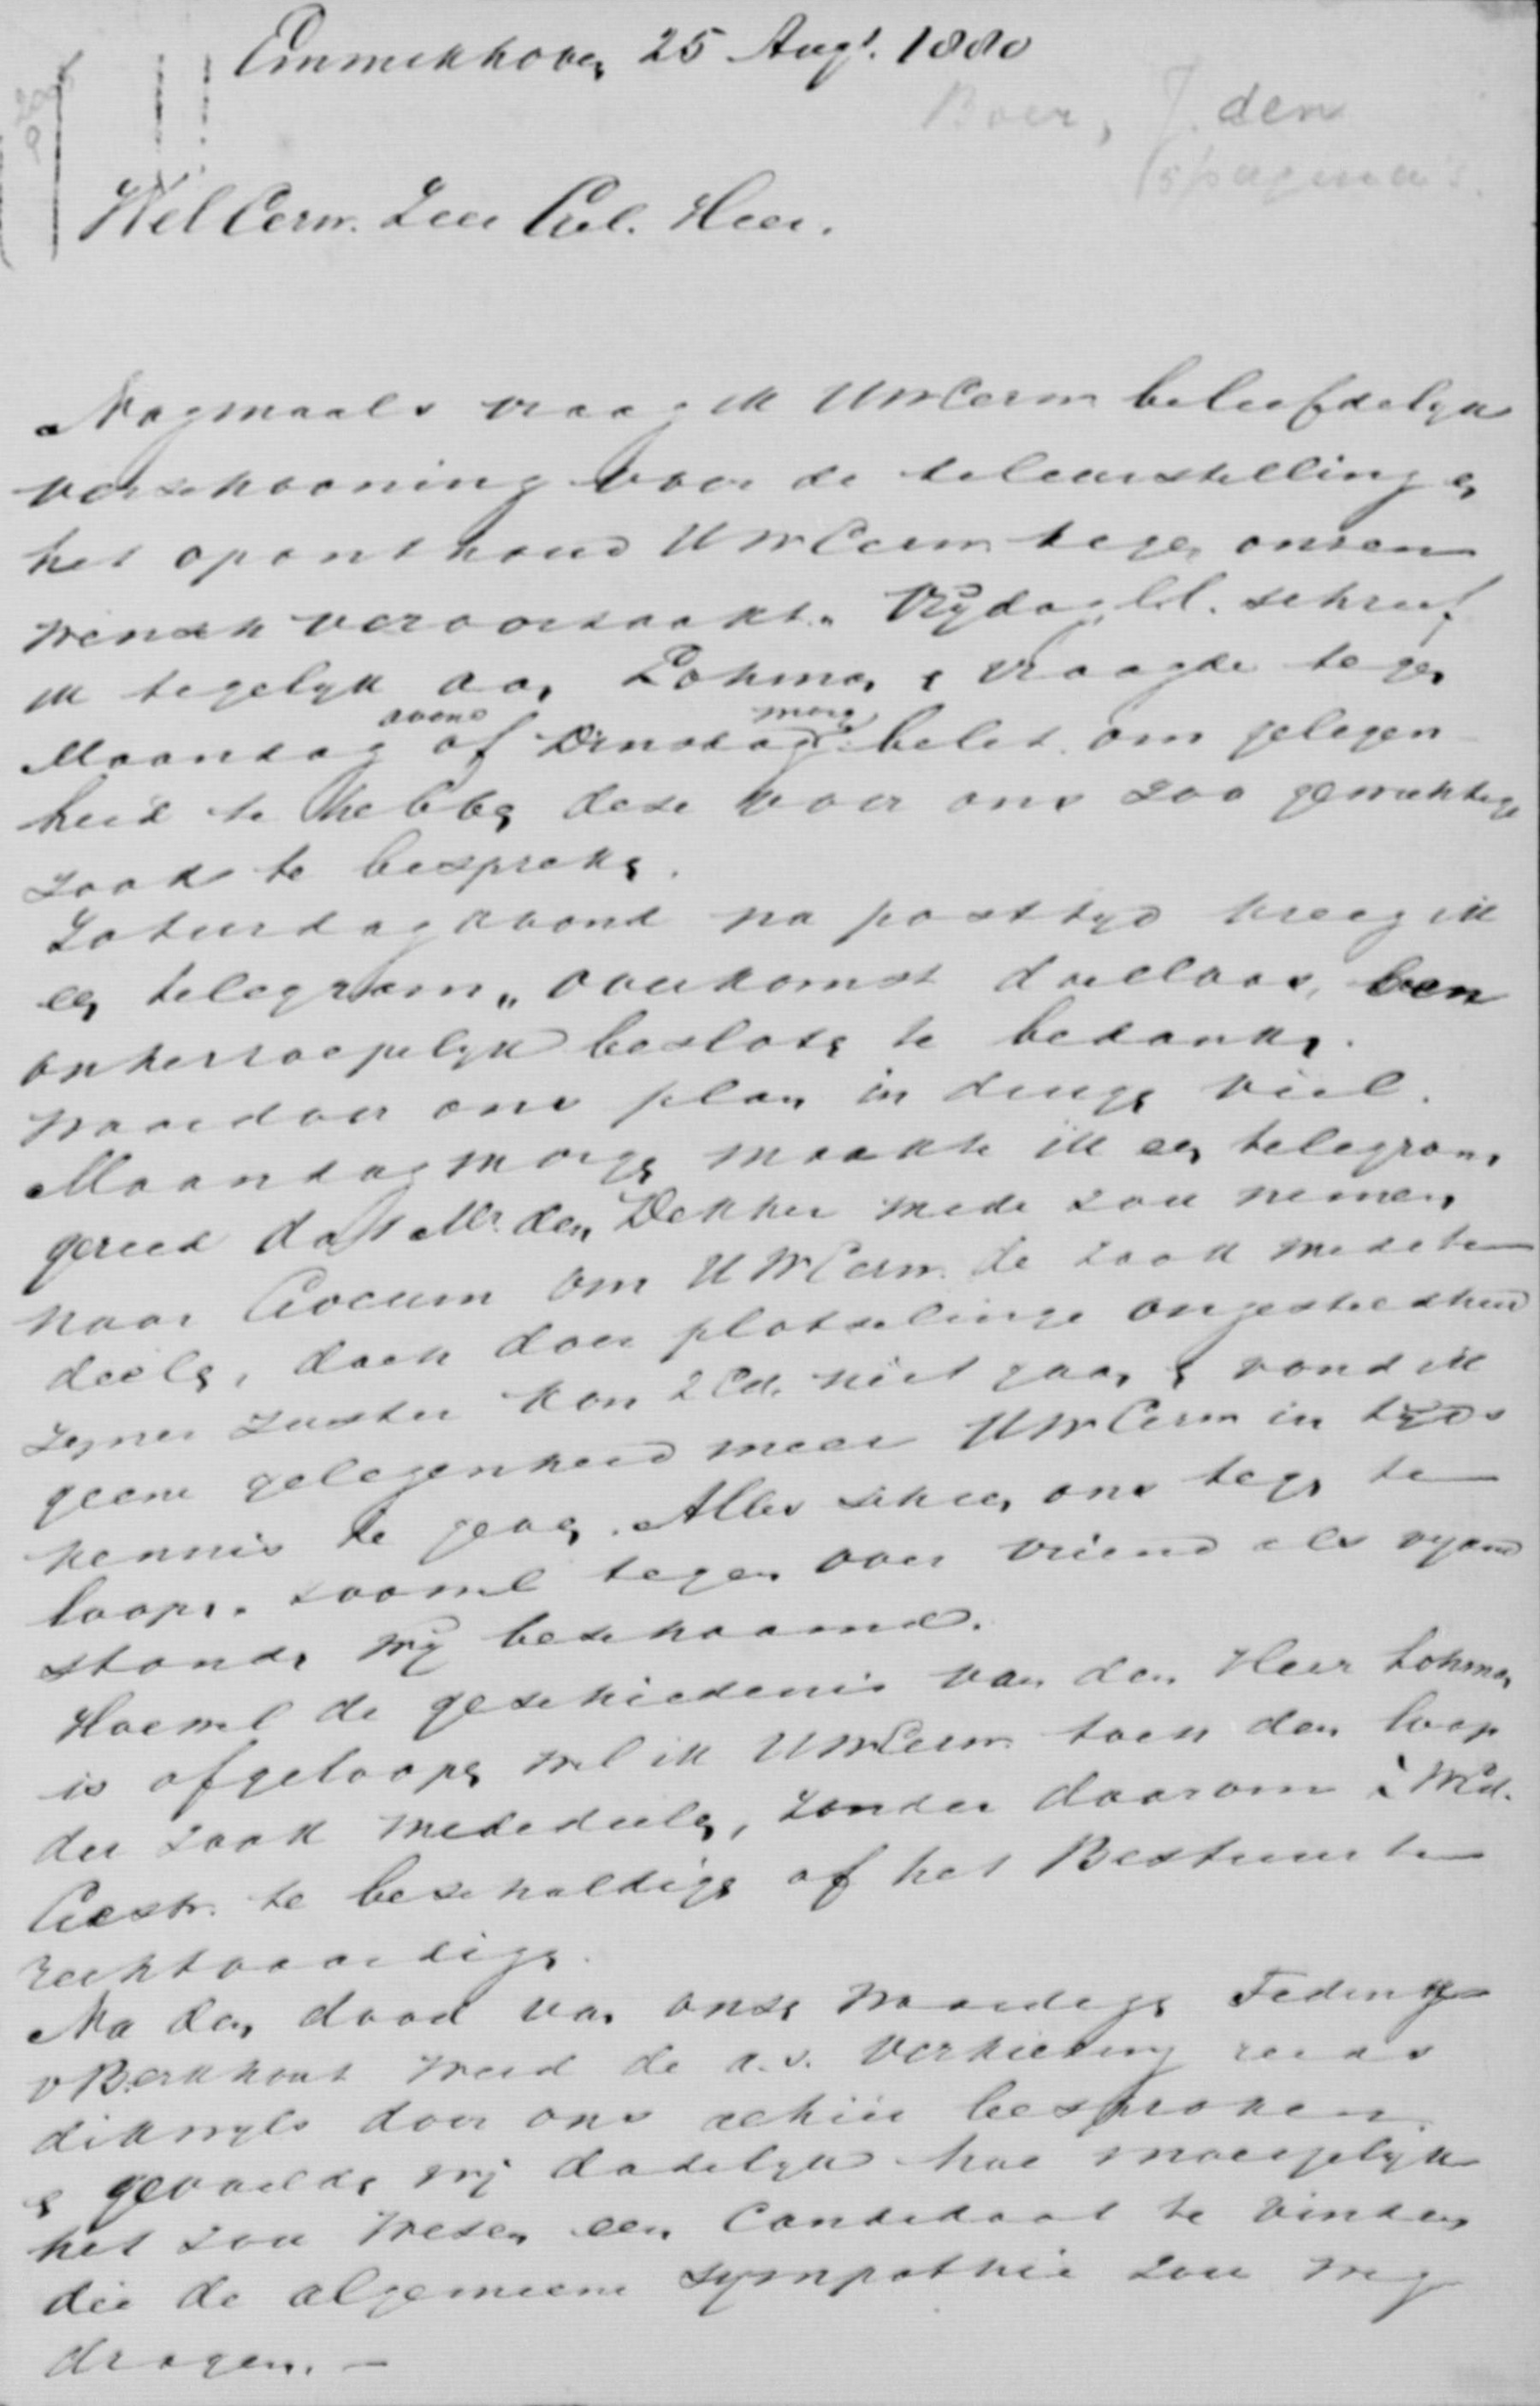 Emmikhoven 25 Augt. 1880
Boer, J. den
(5 pagina's.
WelEerw. Zeer Gel. Heer.
Nogmaals vraag ik UWEerw beleefdelijk
verschooning voor de teleurstelling en
het oponthoud UWEerw tegen onzen
wensch veroorzaakt. Vrijdag ll. schreef
ik tegelijk aan Lohman & vraagde tegen
Maandag avond of Dinsdag morg. belet om gelegen
heid te hebben deze voor ons zoo gewichtige
zaak te bespreken.
Zaturdagavond na posttijd kreeg ik
een telegram „overkomst doelloos, ben
onherroepelijk besloten te bedanken.
waardoor ons plan in duigen viel.
Maandagmorgen maakte ik een telegram
gereed dat Mr. den Dekker mede zou nemen
naar Gorcum om UWEerw. de zaak medete
deelen, doch door plotselinge ongesteldheid
zijner zuster kon ZEd. niet gaan & vond ik
geene gelegenheid meer UWEerw in tijds
kennis te geven. Alles scheen ons tegen te
loopen. zoowel tegen over vriend als vijand
stonden wij beschaamd.
Hoewel de geschiedenis van den Heer Lohman
is afgeloopen wil ik UWEerw. toch den loop
der zaak mededeelen, zonder daarom WEd.
Gestr. te beschuldigen of het Bestuur te
rechtvaardigen.
Na den dood van onzen waardigen Teding
v Berkhout werd de a.s. verkiezing reeds
dikwijls door ons alhier besproken
& gevoelden wij dadelijk hoe moeijelijk
het zou wezen een Candidaat te vinden
die de algemeene sympathie zou weg
dragen. —